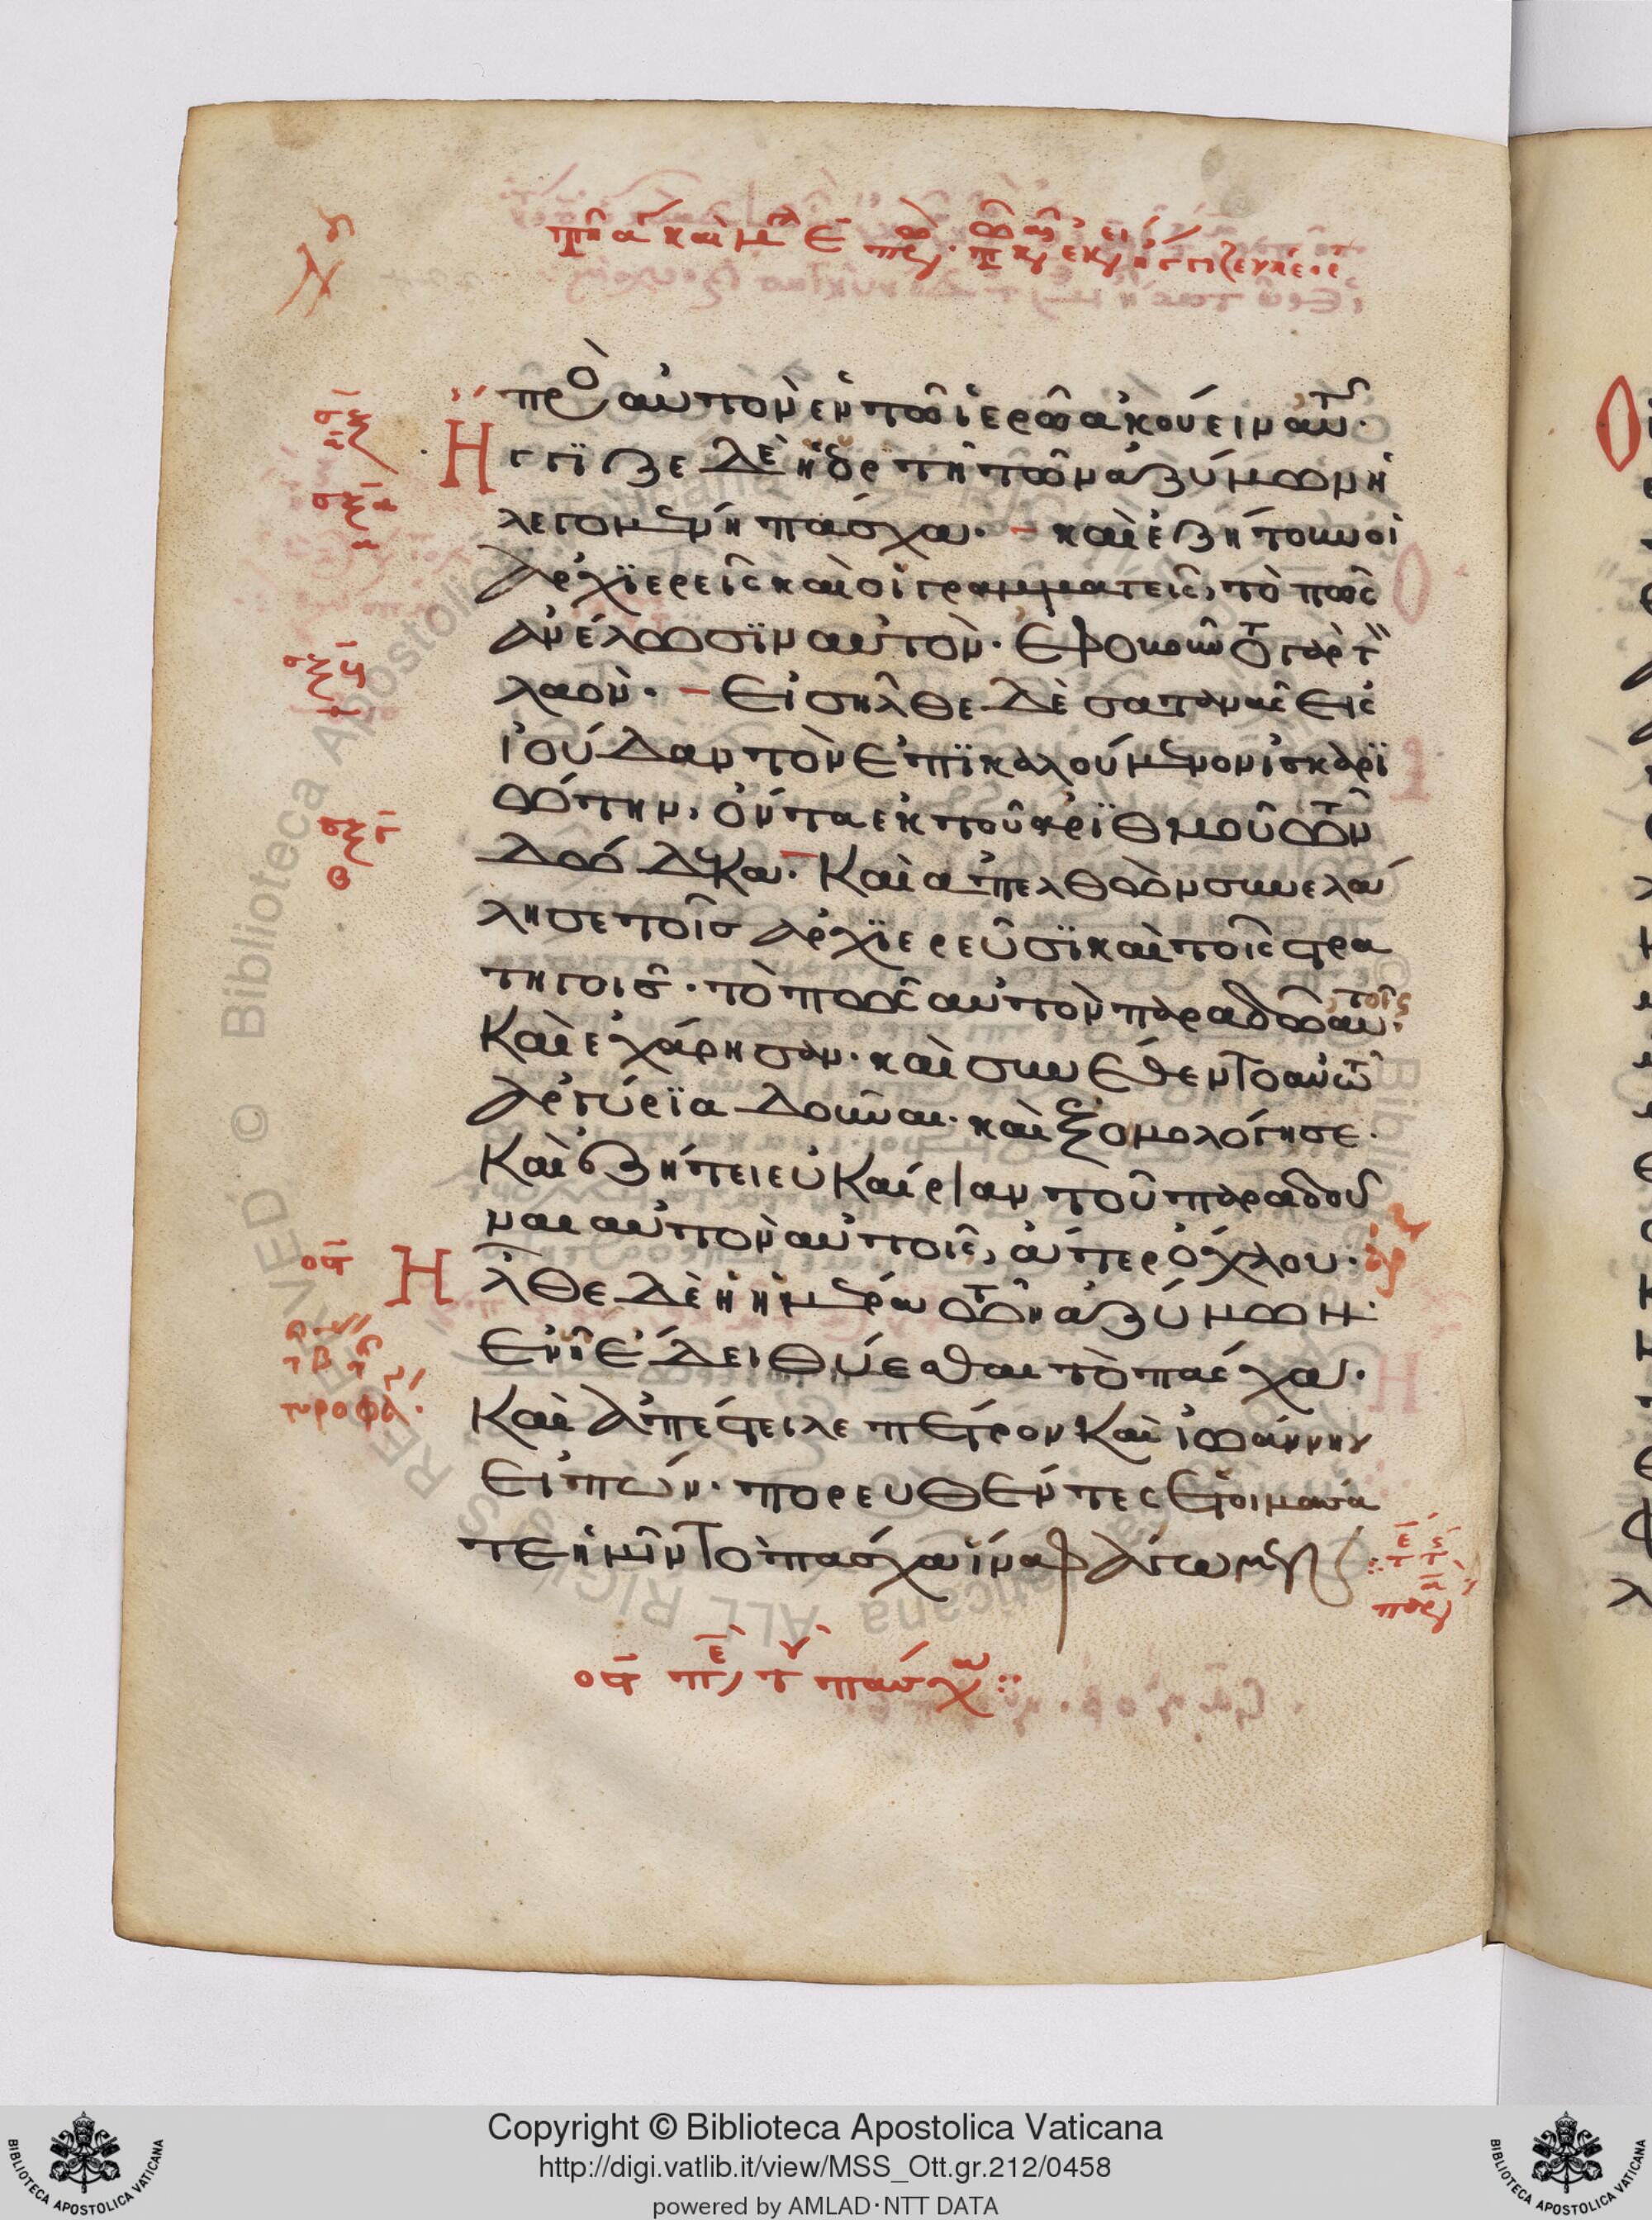 πρὸ αὐτὸν ἐν τῶ ἱερῶ ἀκούειν αὐτοῦ·
Ηγγϊζε δὲ ἡ ἑορτὴ τῶν ἀζύμων ἡ
λεγομένη πάσχα· καὶ ἐζήτουν οἱ
ἀρχϊερεῖς καὶ οἱ γραμματεῖς, τὸ πῶς
ἀνέλωσϊν αὐτόν· ἐφοβοῦντο γὰρ τ
λαόν· Εἰσῆλθε δὲ σατανᾶς εἰς
ἰούδαν τὸν ἐπϊκαλούμενον ἰσκαρϊ
ώτην, ὄντα ἐκ τοῦ ἀρϊθμοῦ τῶν
δώδεκα· Καὶ ἀπελθὼν συνελά
λησε τοῖς ἀρχϊερεῦσϊ καὶ τοῖς στρα
τηγοῖς· τὸ πῶς αὐτὸν παραδῶ αὐτοῖς·
Καὶ ἐχάρησαν· καὶ συνέθεντο αὐτῶ
ἀργύρϊα δοῦναι· καὶ ἐξομολόγησε·
Καὶ ἐζήτει εὐκαίριαν τοῦ παραδοῦ
ναι αὐτὸν αὐτοῖς, ἄτερ ὄχλου·
Ηλθε δὲ ἡ ἡμέρα τῶν ἀζύμων·
Ἐν ἧ ἔδει θύεσθαι τὸ πάσχα·
Καὶ ἀπέστειλε πέτρον Καὶ ἰωάννην
εἰπών· πορευθέντες ἑτοιμάσα
τε ἡμῖν τὸ πάσχα ἵνα φάγωμεν
Copyright © Biblioteca Apostolica Vaticana
http://digi.vatlib.it/view/MSS_Ott.gr.212/0458
powered by AMLAD·NTT DATA
BIBLIOTECA APOSTOLICA VATICANA
BIBLIOTECA APOSTOLICA VATICANA